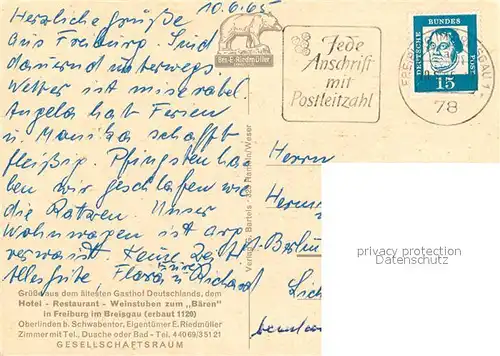 10.6.65
Herzliche Grüße
aus Freiburg. Sind
dauernd unterwegs.
Wetter ist miserabel
Angela hat Ferien
u Monika schafft
fleißig. Pfingsten ha
ben wir geschlafen wie
die Ratzen. Unser
Wohnwagen ist arg
verwaist.
Alles Gute, Eure
Flora u Richard
Grüße aus dem ältesten Gasthof Deutschlands, dem
Hotel - Restaurant - Weinstuben zum „Bären"
in Freiburg im Breisgau (erbaut 1120)
Oberlinden b. Schwabentor, Eigentümer E. Riedmüller
Zimmer mit Tel., Dusche oder Bad - Tel. 44069/35121
GESELLSCHAFTSRAUM
Bes. E. Riedmüller
Verlag G. Bartels - 325 Hameln/Weser
Jede
Anschrift
mit
Postleitzahl
DEUTSCHE
BUNDES
POST
15
78
Herrn
1-Berlin
privacy protection
Datenschutz